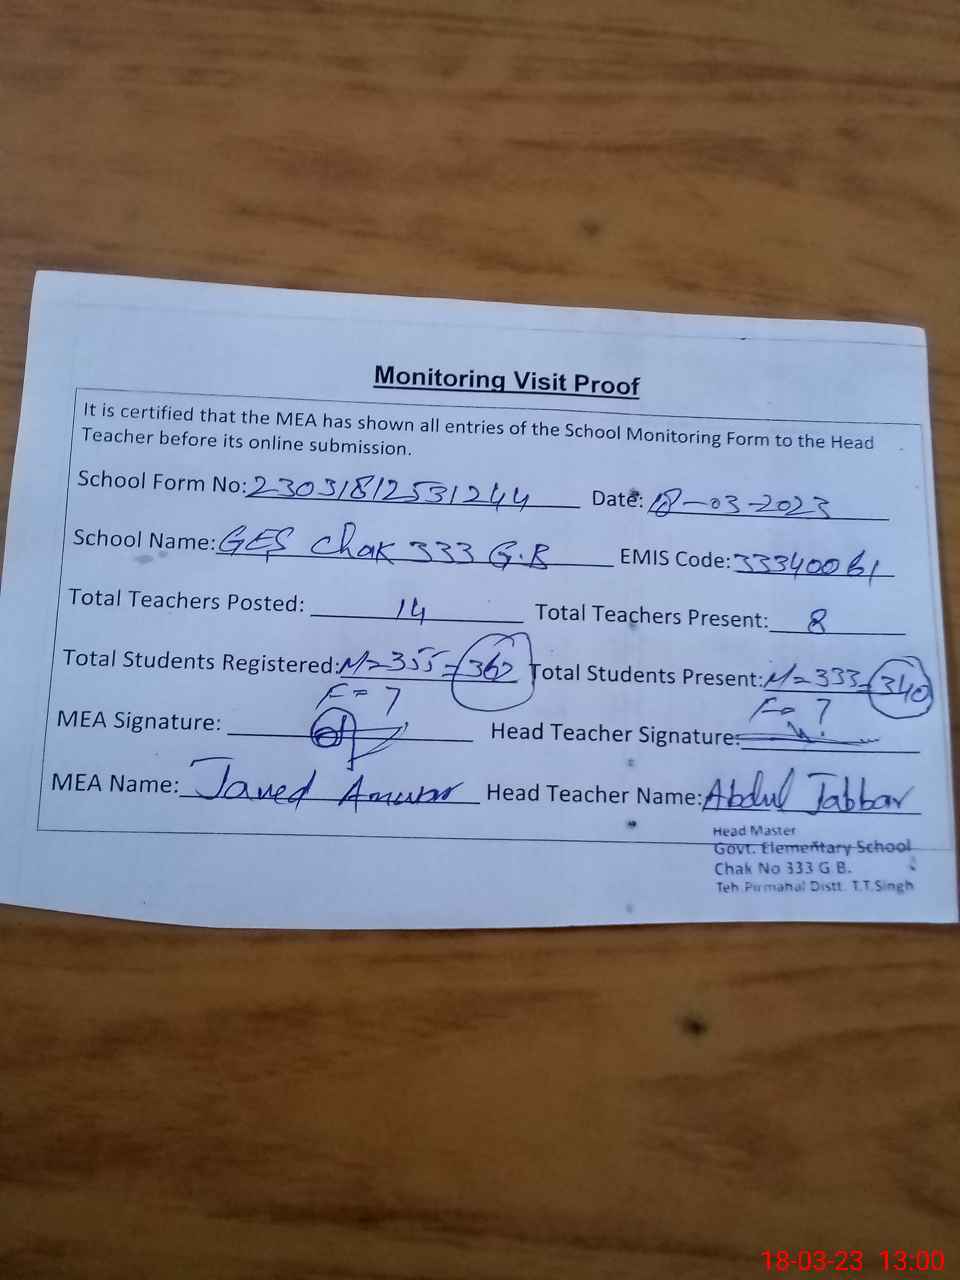 Monitoring Visit Proof
It is certified that the MEA has shown all entries of the School Monitoring Form to the Head
Teacher before its online submission.
School Form No: 23031812531244 Date: 18-03-2023
School Name: GES Chak 333 G.B EMIS Code: 33340061
Total Teachers Posted: 14 Total Teachers Present: 8
Total Students Registered: M=355=362 Total Students Present: M=333=340
F=7 F=7
MEA Signature: Head Teacher Signature:
MEA Name: Javed Anwar Head Teacher Name: Abdul Jabbar
Head Master
Govt. Elementary School
Chak No 333 G B.
Teh.Pirmahal Distt. T.T.Singh
18-03-23 13:00